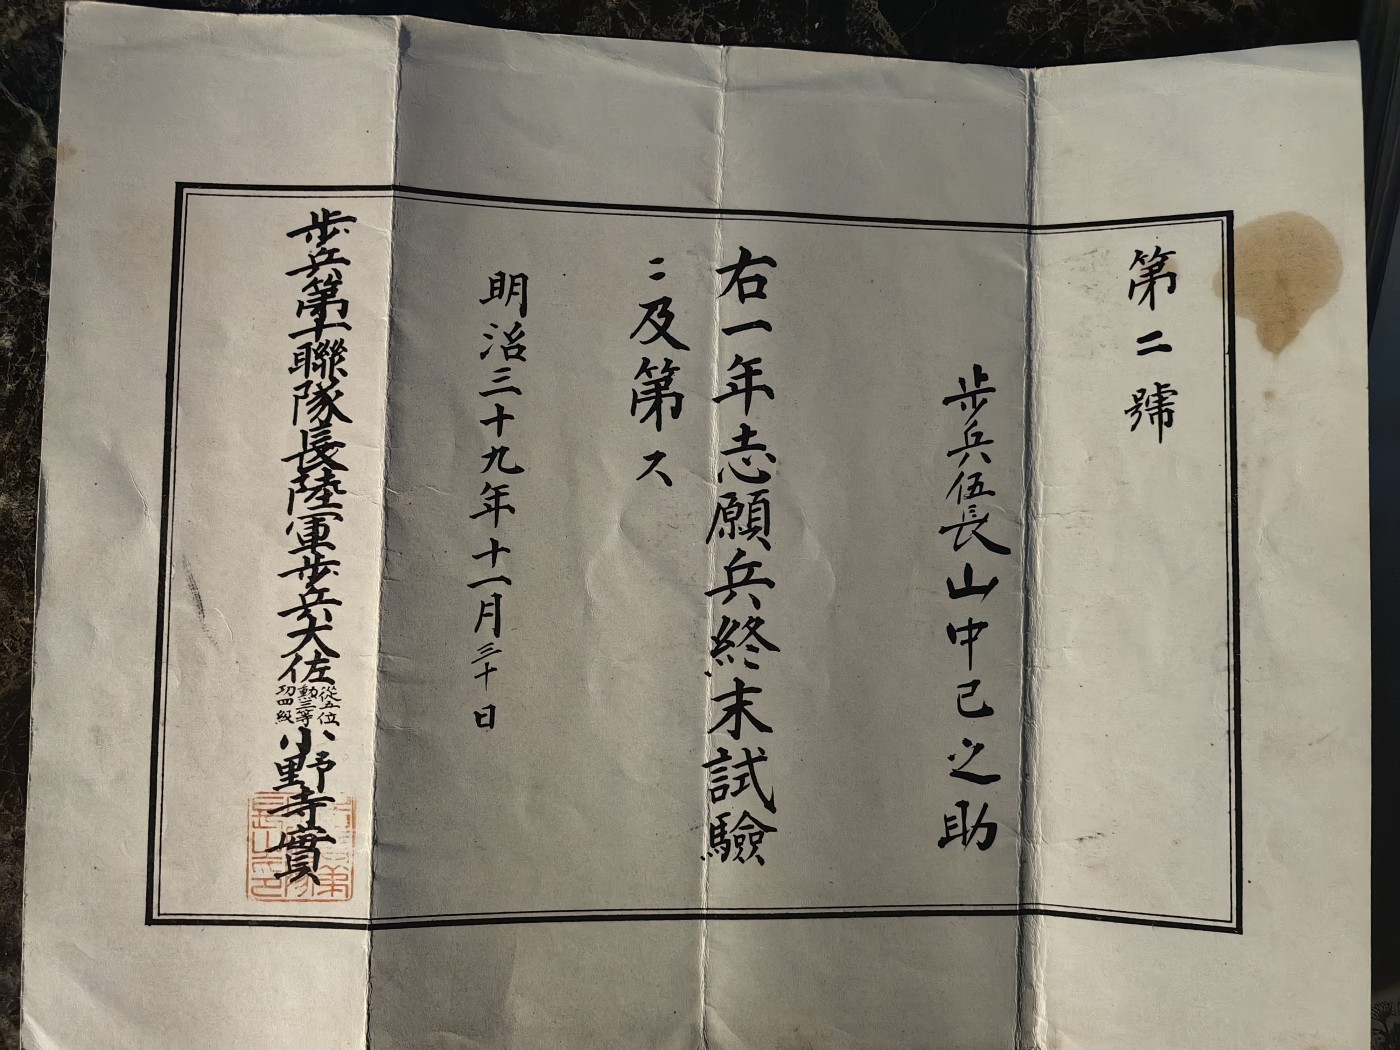 第二號
歩兵伍長山中巳之助
右一年志願兵終末試驗
ニ及第ス
明治三十九年十一月三十日
歩兵第十聯隊長陸軍歩兵大佐從五位勲三等功四級小野寺實